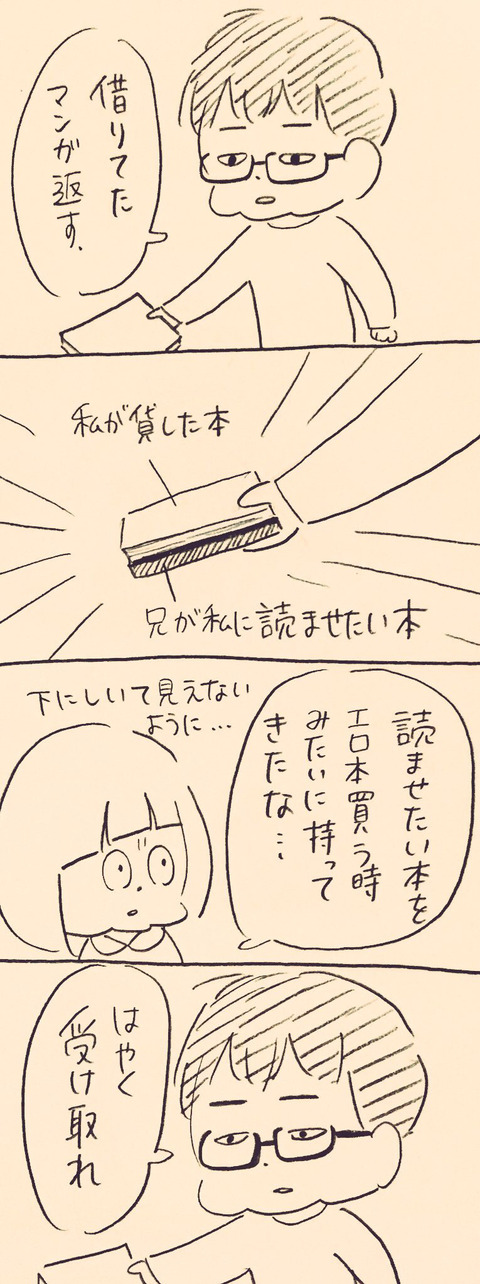 借りてた
マンガ返す.
私が貸した本
兄が私に読ませたい本
読ませたい本を
エロ本買う時
みたいに持って
きたな…
下にしいて見えない
ように…
はやく
受け取れ